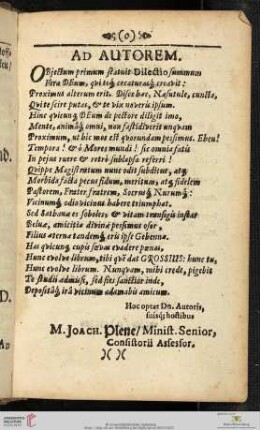 (o)
AD AUTOREM.
OBjectum primum statuit Dilectio summum
Vera DEum, qui totq́; creaturasq́; creavit:
Proximus alterum erit. Disce hæc, Nasutule, cuncta,
Qui te scire putas, & te vix noveris ipsum.
Hinc qvicunq́; DEum de pectore diligit imo,
Mente, animâq́; omni, non fastidiverit unqvam
Proximum, ut hic mos est qvorundam pessimus. Eheu!
Tempora! & ô Mores mundi! sic omnia fatis
In pejus ruere & retrò sublapsa referri!
Qvippe Magistratum nunc odit subditus, atq́;
Morbida facta pecus fidum, meritum, atq́; fidelem
Pastorem, Frater fratrem, Socrusq́; Nurumq́;:
Vicinumq́; odio vicinus habere triumphat.
Sed Sathanæ es soboles, & vitam transigis instar
Beluæ, amicitiæ divinæ perfimus osor,
Filius æternæ tandemq́; eris ipse Gehennæ.
Has qvicunq́; cupis sævas evadere pœnas,
Hunc evolve librum, tibi qvē dat GROSSIUS: hunc tu,
Hunc evolve librum. Nunqvam, mihi crede, pigebit
Te studii admissi, sed sis sanctior inde,
Depositâq́; irâ vicinum adamabis amicum.
Hoc optat Dn. Autoris,
suisq́; hostibus
M. JOACH. Plene/ Minist. Senior,
Consistorii Assessor.